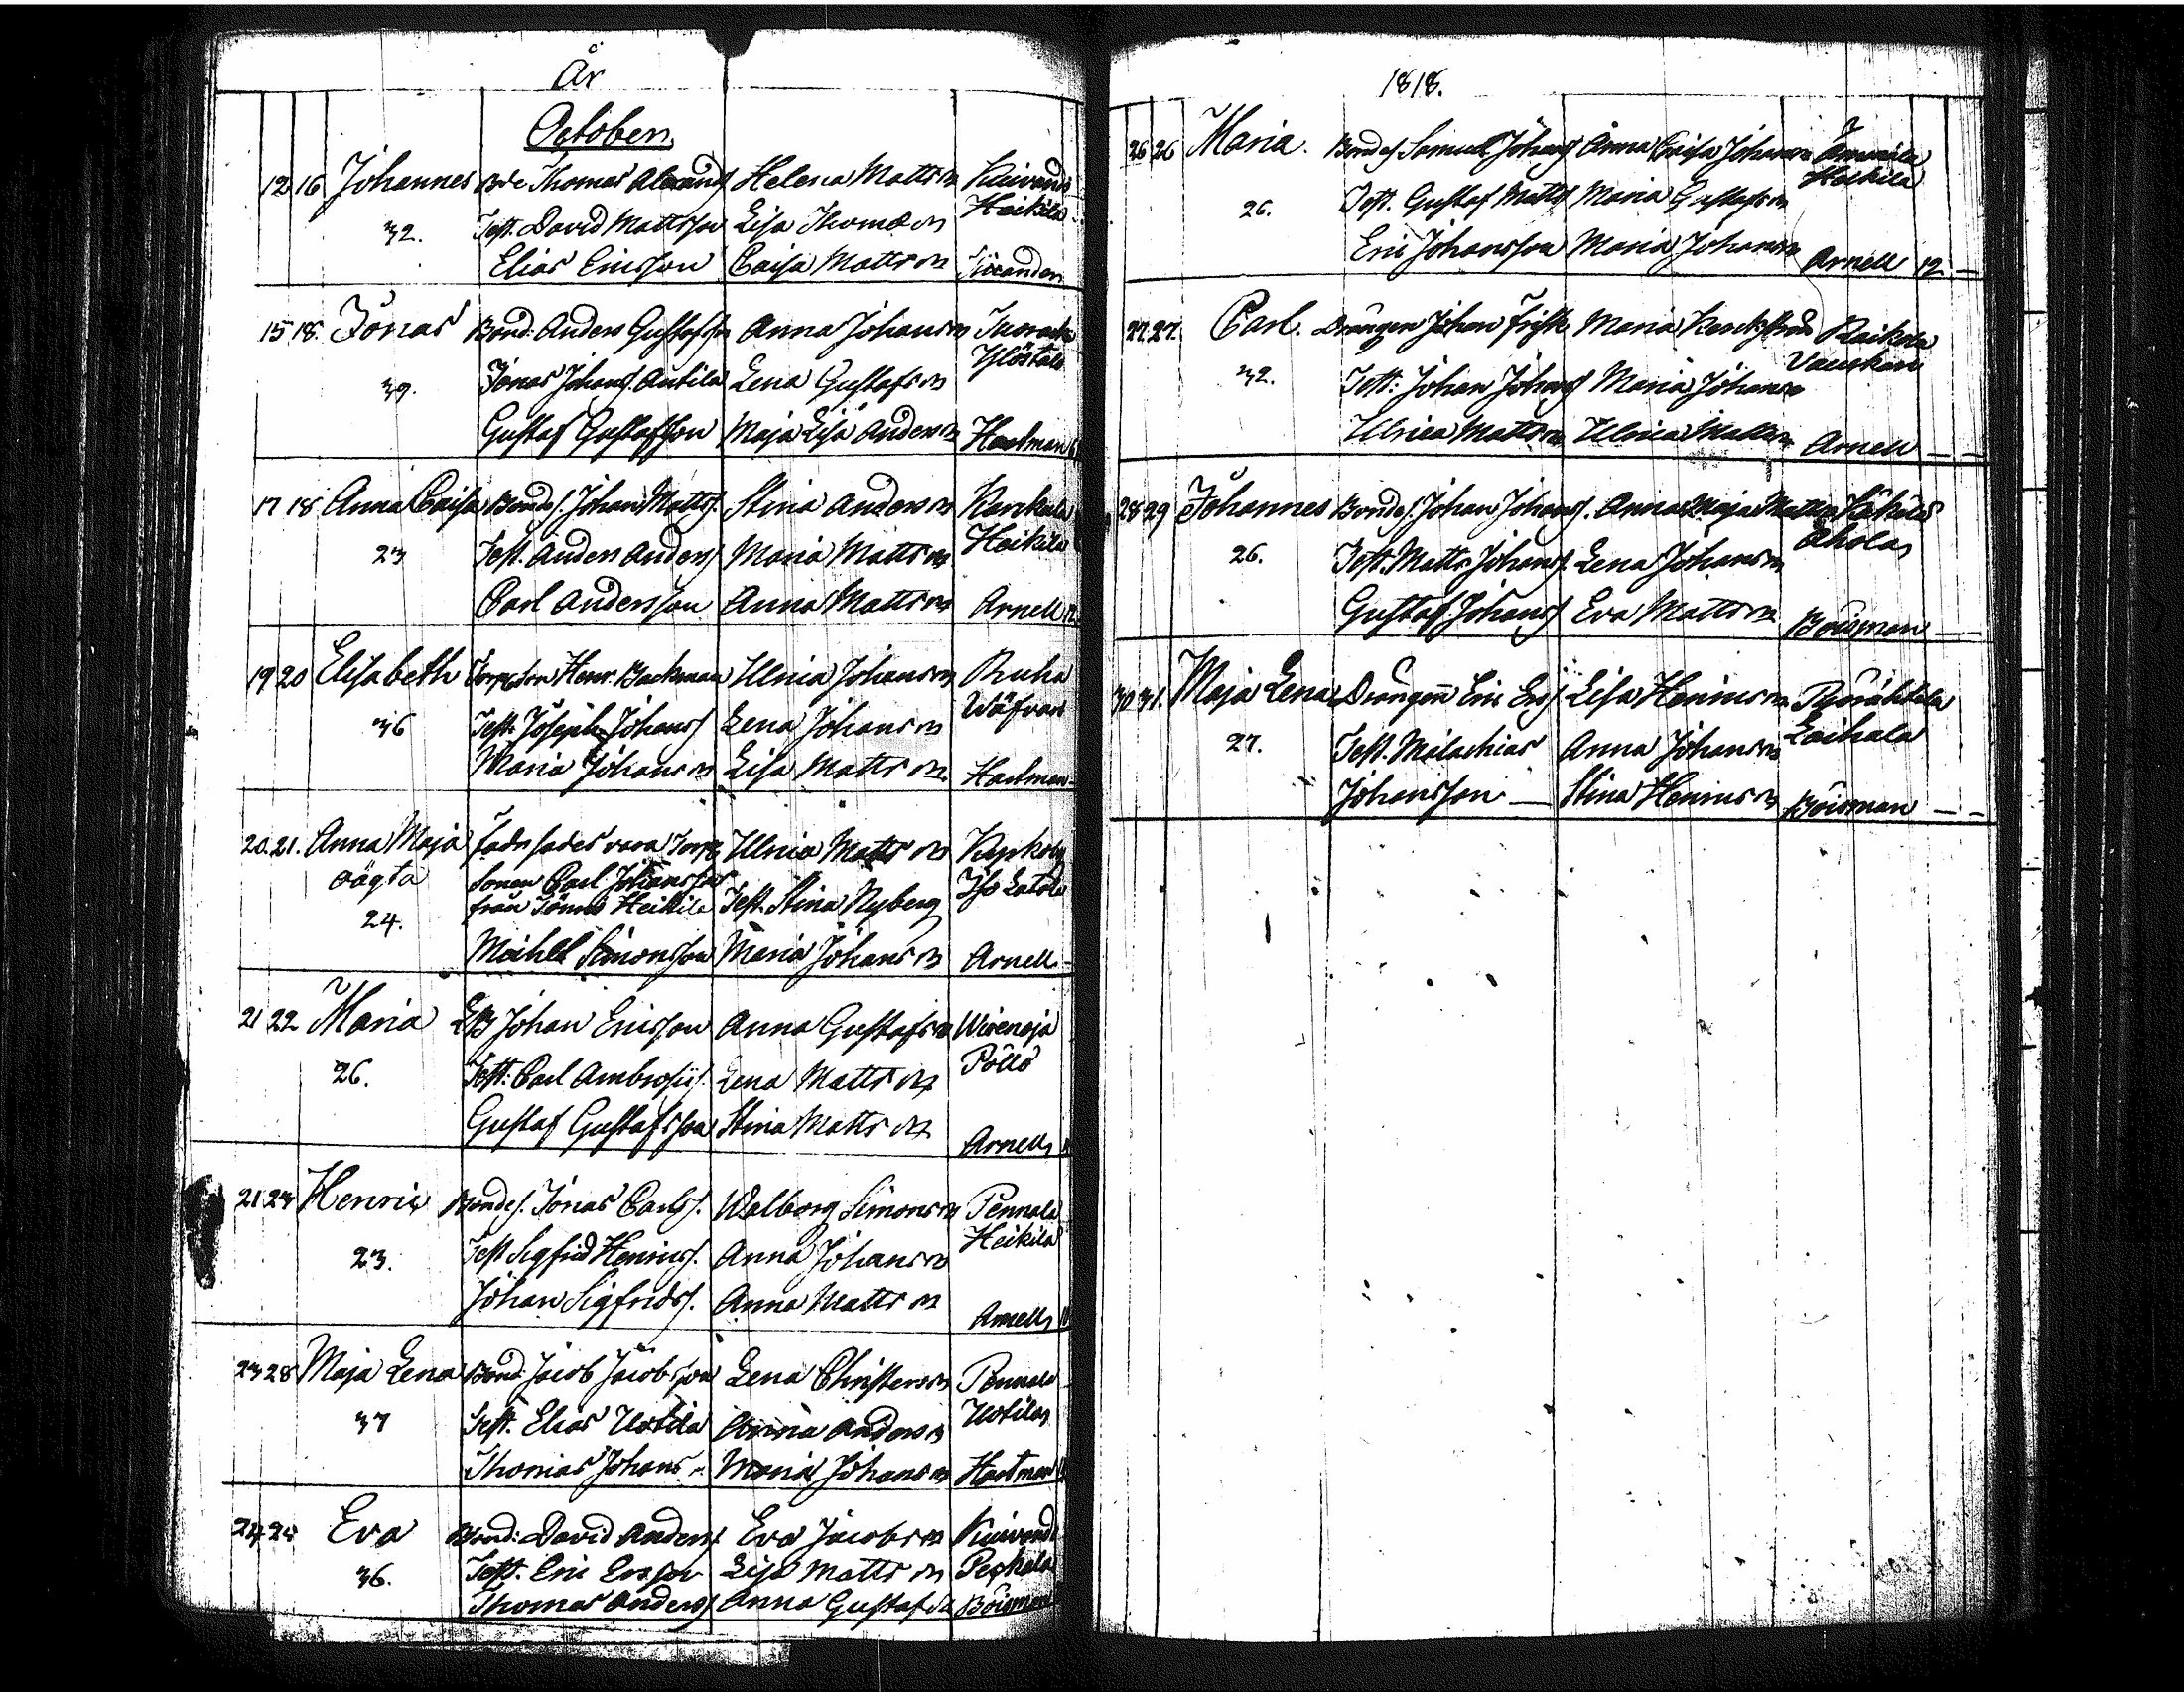 År
October
12 16 Johannes Bde Thomas Alexand Helena Matts dr Kuivand
32. Test. David Mattsson Lisa Thomæ dr Heikila
Elias Ericsson Caisa Matts dr
15 18. Jonas Bond. Anders Gustafson Anna Johans dr
39. Jonas Johans. Antila Lena Gustafs dr Ylöstalo
Gustaf Gustafsson Maja Lisa Anders dr Hartman
17 18 Anna Caisa Bondes. Johan Matts. Stina Anders dr Karkula
23 Test. Anders Anders Maria Matts dr Heikila
Carl Andersson Anna Matts dr Arnell
19 20 Elisabeth Henr. Backman Ulrica Johans dr Ruha
36 Test. Joseph Johans Lena Johans dr Wäfvar
Maria Johans dr Lisa Matts dr Hartman
20. 21. Anna Maja fadr sades vara Torp Ulrica Matts dr
oägta sonen Carl Johansson
24. från Heikila Test. Stina Nyberg
Michel Simonsson Maria Johans dr Arnell
21 22 Maria Johan Ericsson Anna Gustafs dr Wirenoja
26. Test: Carl Ambrosii Lena Matts dr Pöllö
Gustaf Gustafsson Stina Matts dr Arnell
21 23 Henric Bondes. Jonas Carls. Walborg Simons dr Pennala
23. Test Sigfrid Henrics. Anna Johans dr Heikila
Johan Sigfrids. Anna Matts dr Arnell
23 28 Maja Lena Bond. Jacob Jacobsson Lena Christers dr Pennala
37 Test. Elias Uotila Anna Anders dr Uotila
Thomas Johans Maria Johans dr Hartman
24 24 Eva Bond: David Anders Eva Jacobs dr Kuivand
36. Test. Eric Ersson Lisa Matts dr Peskala
Thomas Anders Anna Gustafs dr Boisman
1818.
26 26 Maria. Bondes Samuel Johans Anna Caisa Johans dr
26. Test. Gustaf Matts Maria Gustafs dr Heikila
Eric Johansson Maria Johans dr Arnell 12
27 27. Carl. Drängen Johan Frisk Maria Raikola
32. Test: Johan Johans Maria Johans dr
Ulrica Matts dr Ulrica Matts dr Arnell
28 29 Johannes Bondes. Johan Johans. Anna Maja Matts
26. Test. Matts Johans. Lena Johans dr Ahola
Gustaf Johans Eva Matts dr Boisman
30 31. Maja Lena Drängen Eric Ers Lisa Henrics dr
27. Test. Malachias Anna Johans dr Laihala
Johansson Stina Henrics dr Boisman